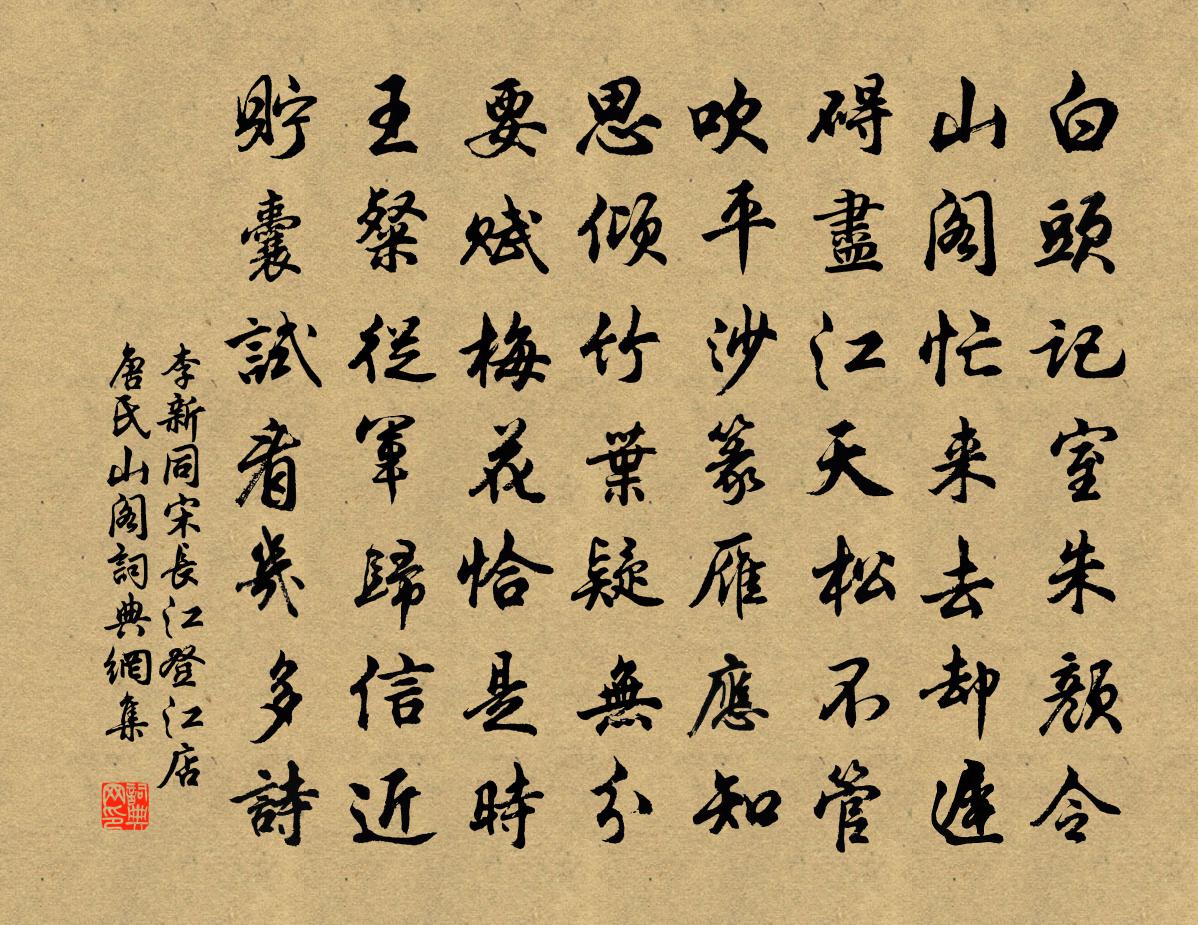 白頭記室朱顏令
山閣忙来去却遲
碍盡江天松不管
吹平沙篆雁應知
思傾竹葉疑無分
要賦梅花恰是時
王粲從軍歸信近
貯囊試看幾多詩
李新同宋長江登江店
唐氏山閣詞典網集
詞典网印